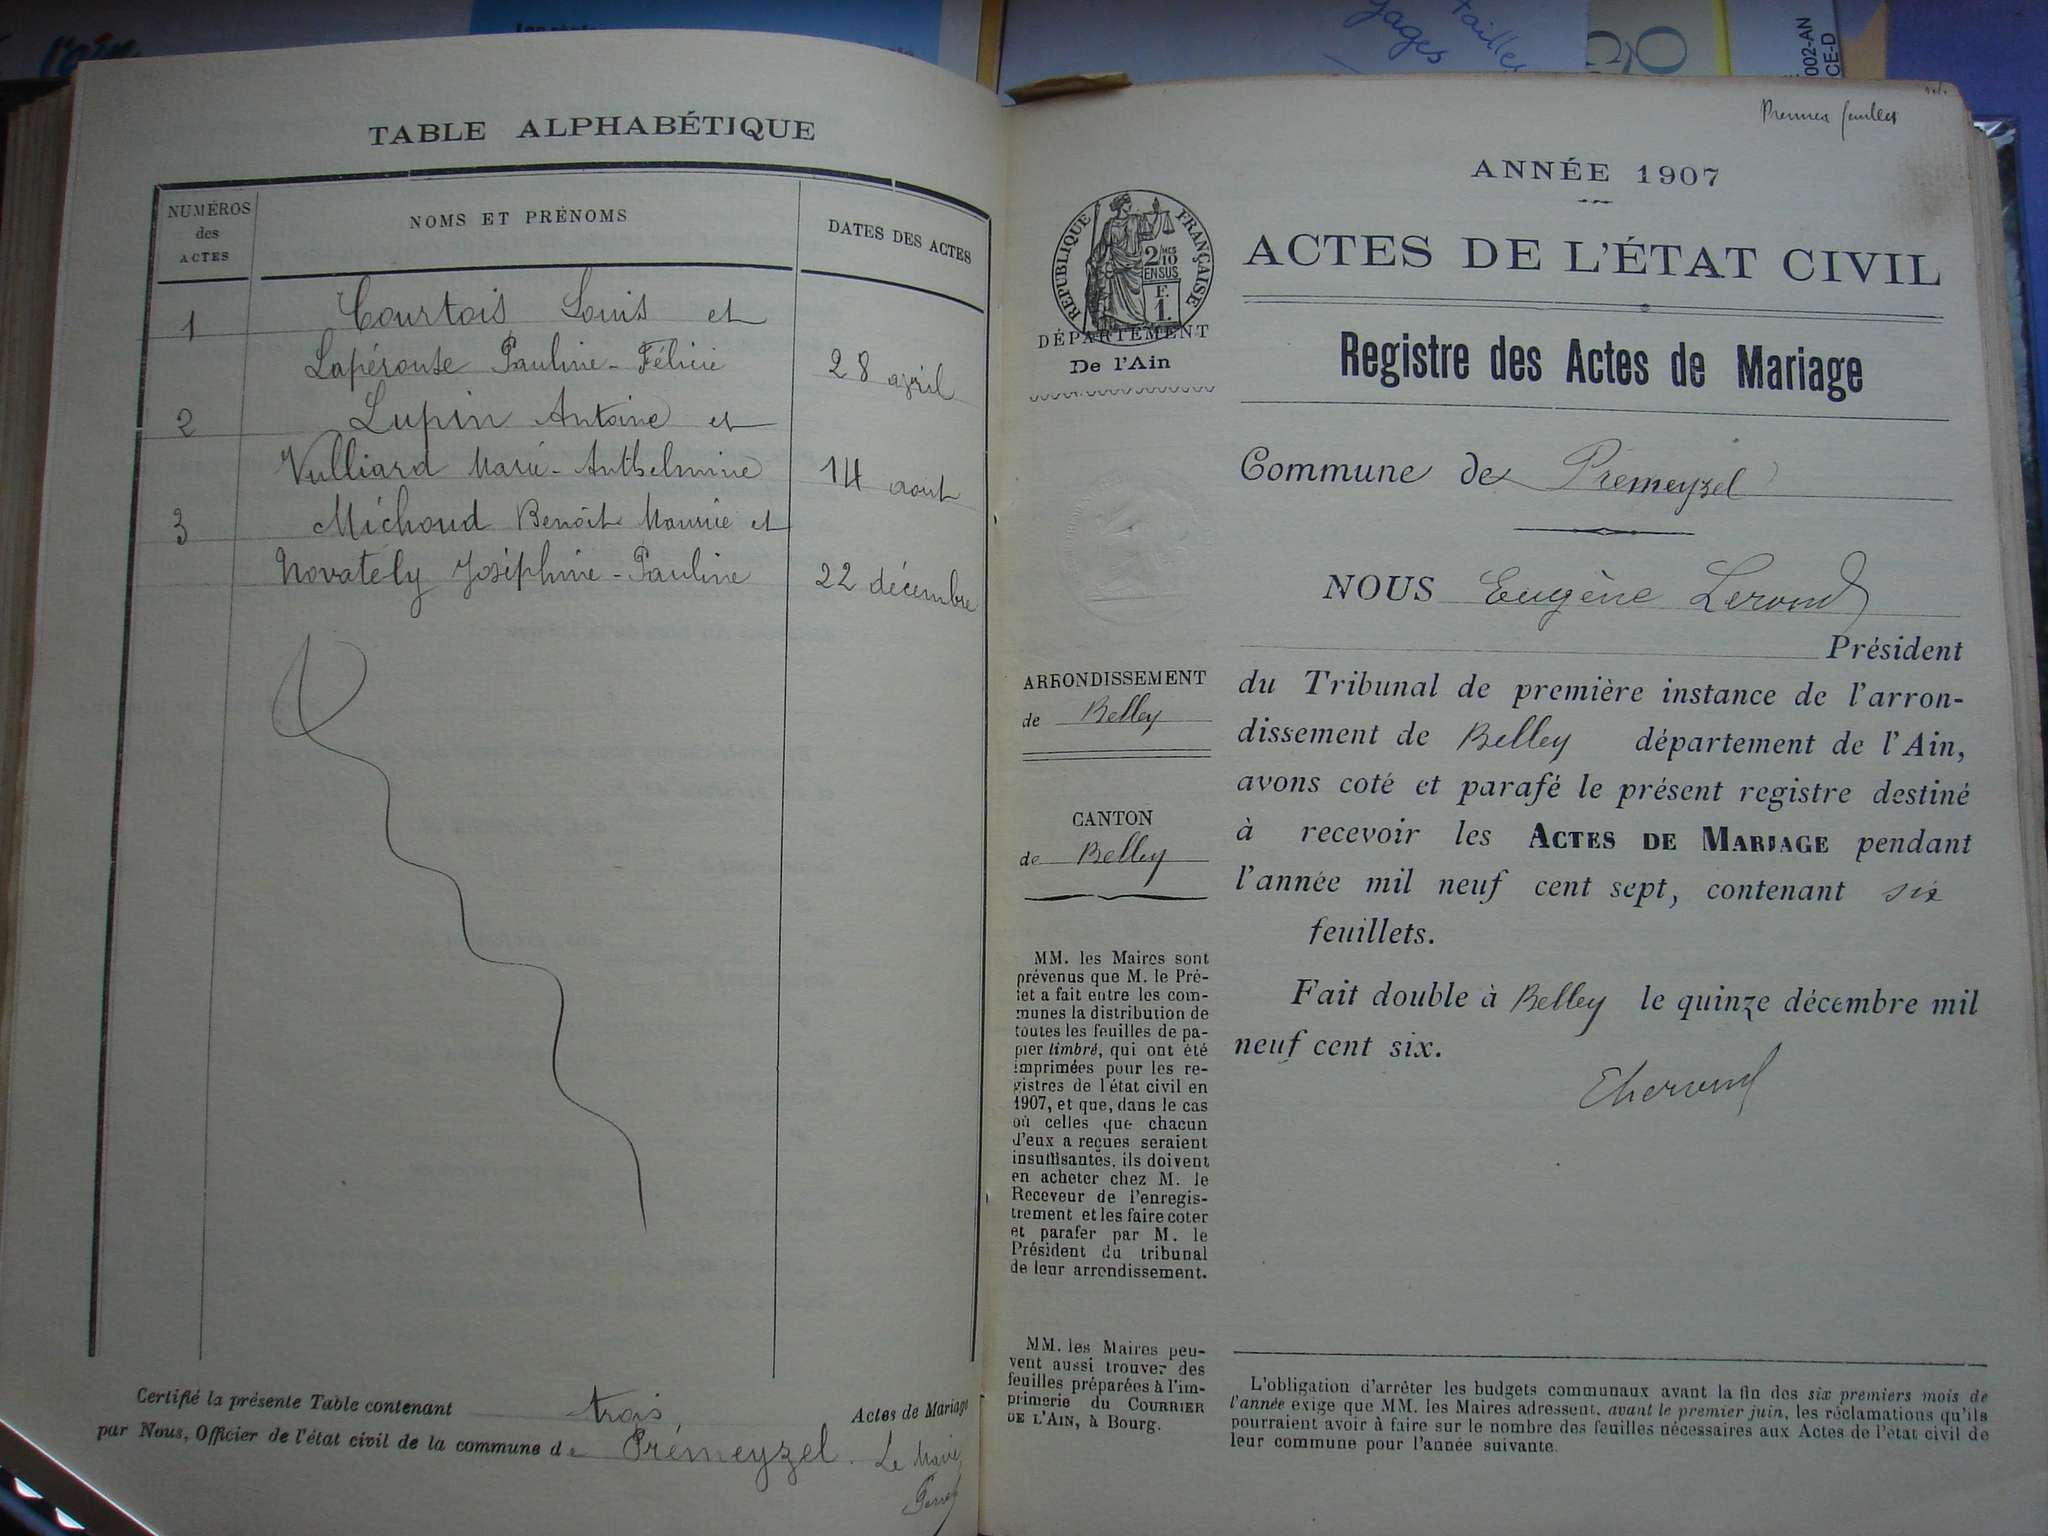 l'ain
TABLE ALPHABÉTIQUE
NUMÉROS
des
ACTES
NOMS ET PRÉNOMS
DATES DES ACTES
1
Courtois Louis et
Lapérouse Pauline-Félicie
28 avril
2
Lupin Antoine et
Vulliard Marie-Anthelmine
14 août
3
Michoud Benoît Maurice et
Novatély Joséphine-Pauline
22 décembre
Certifié la présente Table contenant trois Actes de Mariage
par Nous, Officier de l'état civil de la commune de Prémeyzel. Le Maire
002-AN
CE-D
Premier feuillet
ANNÉE 1907
RÉPUBLIQUE FRANÇAISE
2/10
EN SUS
F.
1.
DÉPARTEMENT
De l'Ain
ACTES DE L'ÉTAT CIVIL
Registre des Actes de Mariage
Commune de Prémeyzel
NOUS Eugène Lerond
Président
du Tribunal de première instance de l'arron-
dissement de Belley département de l'Ain,
avons coté et parafé le présent registre destiné
à recevoir les ACTES DE MARIAGE pendant
l'année mil neuf cent sept, contenant six
feuillets.
Fait double à Belley le quinze décembre mil
neuf cent six.
ARRONDISSEMENT
de Belley
CANTON
de Belley
MM. les Maires sont
prévenus que M. le Pré-
fet a fait entre les com-
munes la distribution de
toutes les feuilles de pa-
pier timbré, qui ont été
imprimées pour les re-
gistres de l'état civil en
1907, et que, dans le cas
où celles que chacun
d'eux a reçues seraient
insuffisantes, ils doivent
en acheter chez M. le
Receveur de l'enregis-
trement et les faire coter
et parafer par M. le
Président du tribunal
de leur arrondissement.
MM. les Maires peu-
vent aussi trouver des
feuilles préparées à l'im-
primerie du COURRIER
DE L'AIN, à Bourg.
L'obligation d'arrêter les budgets communaux avant la fin des six premiers mois de
l'année exige que MM. les Maires adressent, avant le premier juin, les réclamations qu'ils
pourraient avoir à faire sur le nombre des feuilles nécessaires aux Actes de l'état civil de
leur commune pour l'année suivante.